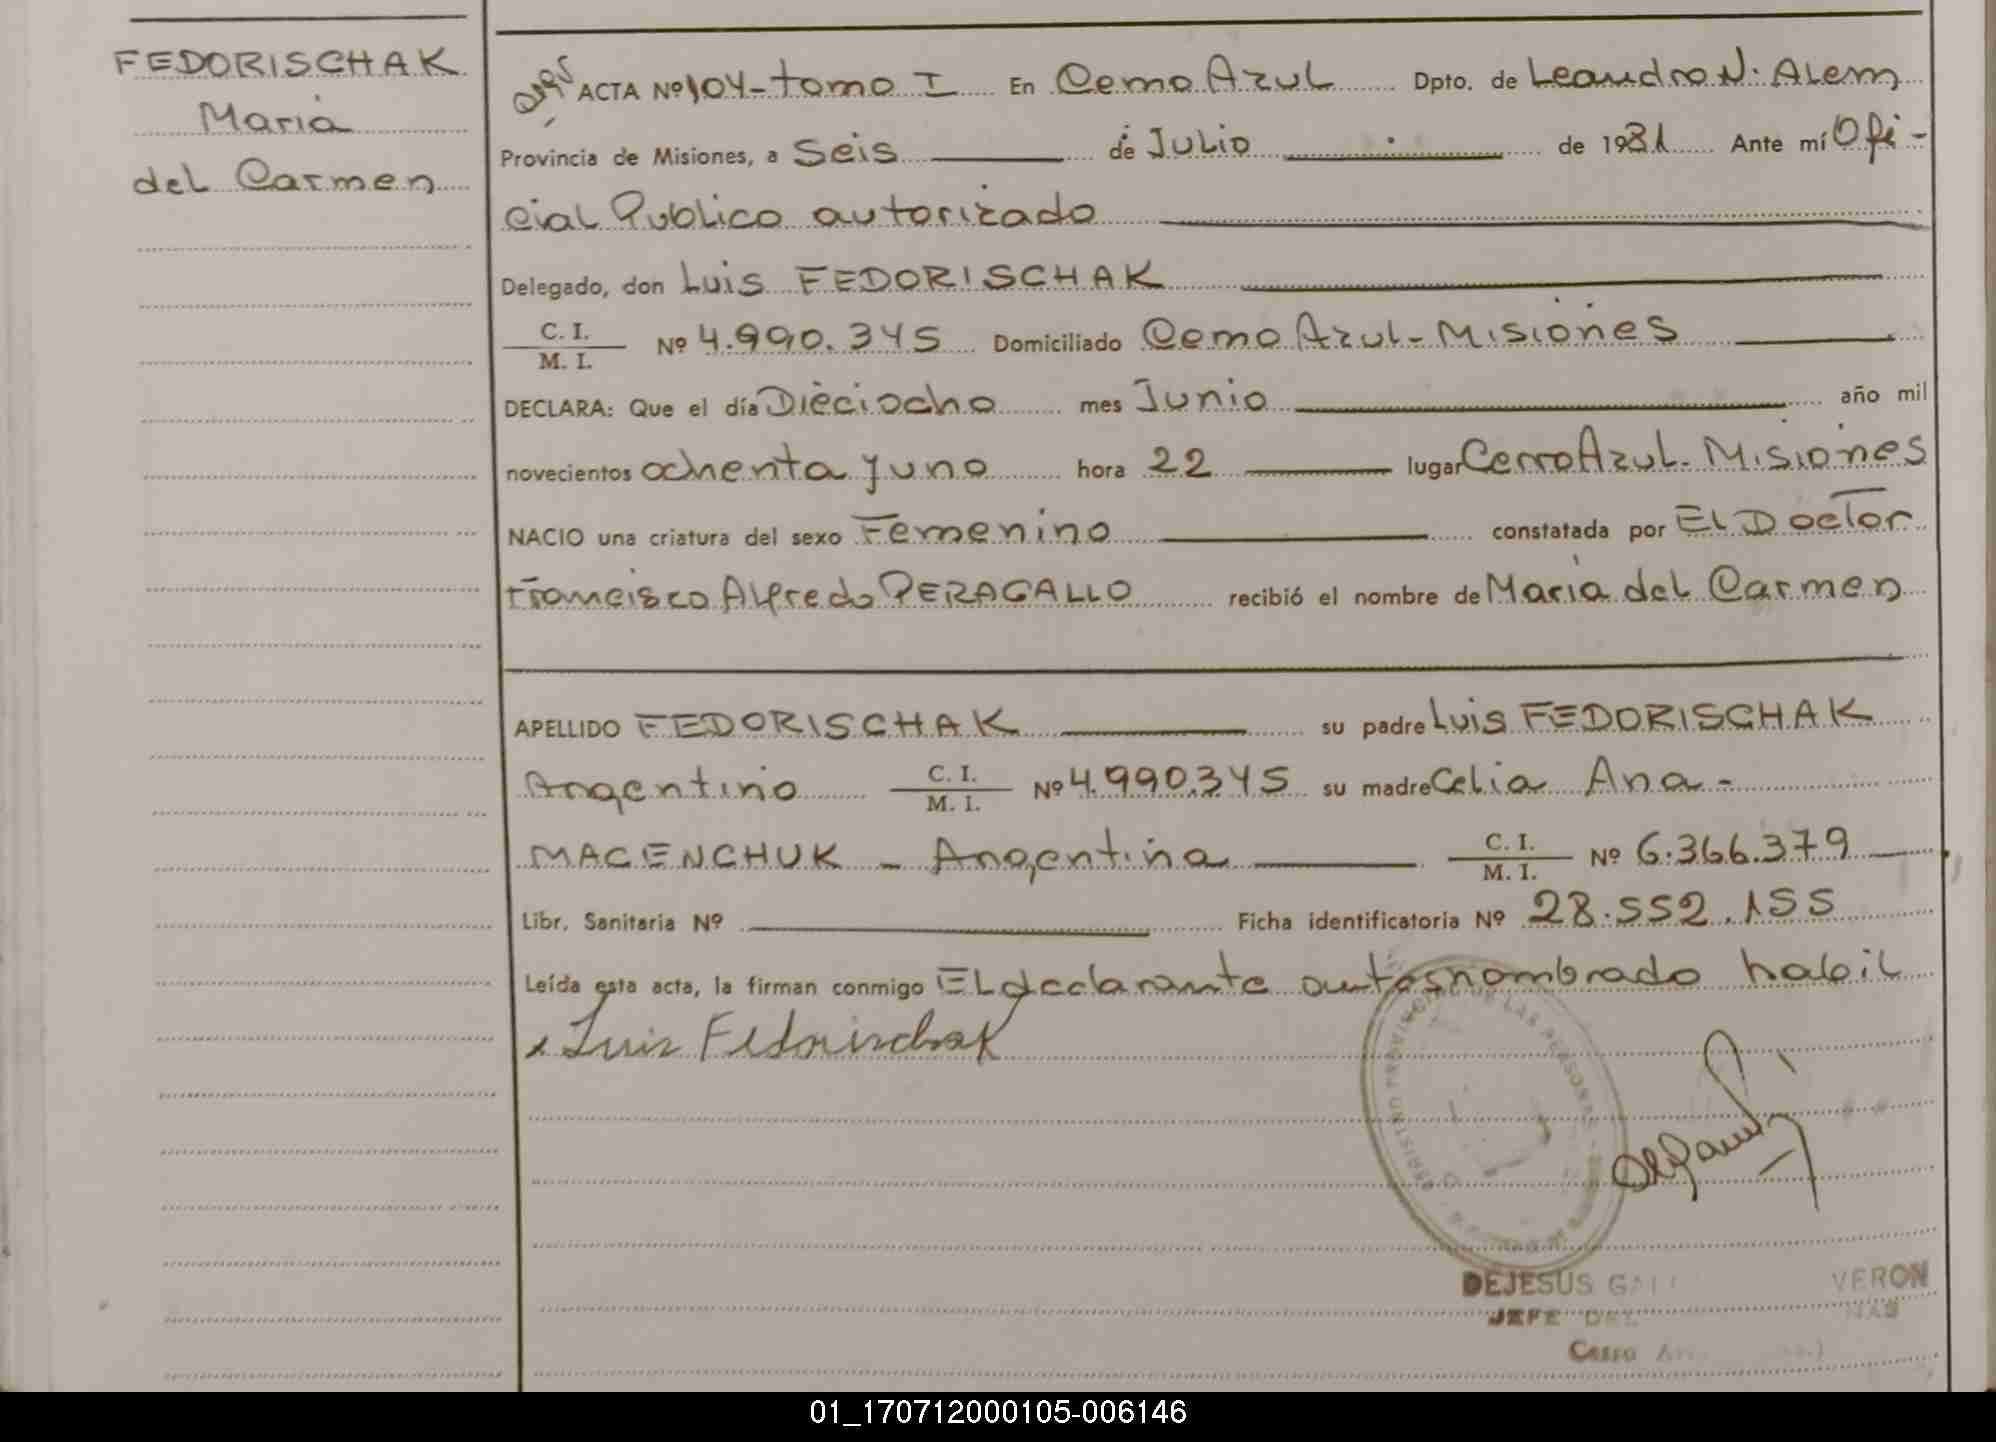 FEDORISCHAK
Maria
del Carmen
ACTA Nº 104-tomo I En Cerro Azul Dpto. de Leandro N. Alem
Provincia de Misiones, a Seis de Julio de 1981 Ante mí Ofi-
cial Publico autorizado
Delegado, don Luis FEDORISCHAK
C. I.
M. I.
Nº 4.990.345 Domiciliado Cerro Azul-Misiones
DECLARA: Que el día Dieciocho mes Junio año mil
novecientos ochenta y uno hora 22 lugar Cerro Azul. Misiones
NACIO una criatura del sexo Femenino constatada por El Doctor
Francisco Alfredo PERAGALLO recibió el nombre de Maria del Carmen
APELLIDO FEDORISCHAK su padre Luis FEDORISCHAK
Argentino C. I. M. I. Nº 4.990.345 su madre Celia Ana-
MACENCHUK - Argentina C. I. M. I. Nº 6.366.379
Libr. Sanitaria Nº Ficha identificatoria Nº 28.552.155
Leída esta acta, la firman conmigo El declarante antesnombrado habil
x Luis Fedorischak
REGISTRO PROVINCIAL DE LAS PERSONAS
DEJESUS VERON
JEFE
Cerro
01_170712000105-006146